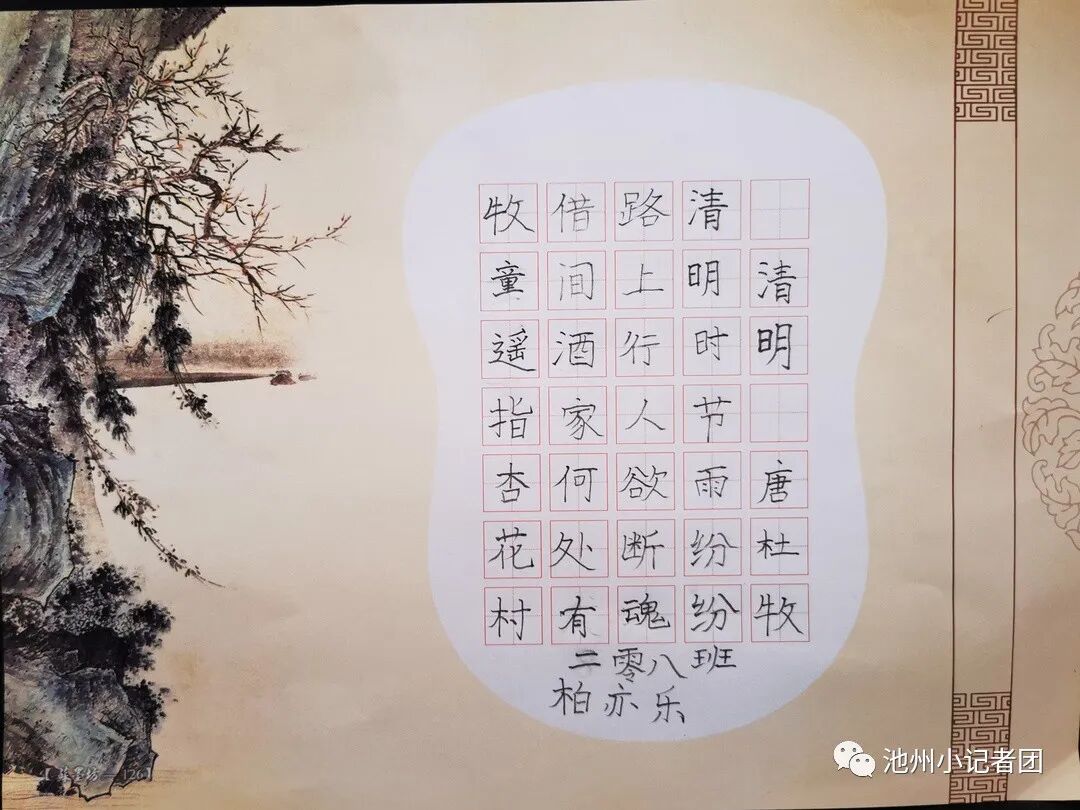 清明 唐杜牧
清明时节雨纷纷
路上行人欲断魂
借间酒家何处有
牧童遥指杏花村
二零八班
柏亦乐
池州小记者团